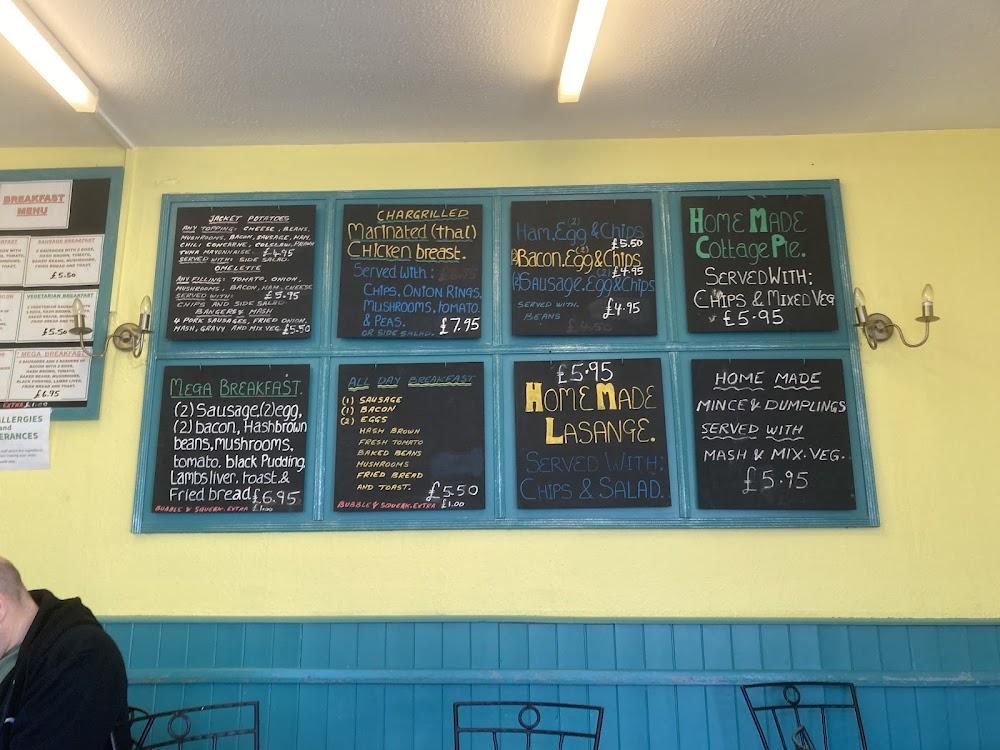 BREAKFAST
MENU
SAUSAGE BREAKFAST
2 SAUSAGES WITH 2 EGGS,
HASH BROWN, TOMATO,
BAKED BEANS, MUSHROOMS,
FRIED BREAD AND TOAST.
£5.50
VEGETARIAN BREAKFAST
£5.50
MEGA BREAKFAST
2 SAUSAGES AND 2 RASHERS OF
BACON WITH 2 EGGS,
HASH BROWN, TOMATO,
BAKED BEANS, MUSHROOMS,
BLACK PUDDING, LAMBS LIVER,
FRIED BREAD AND TOAST.
£6.95
EXTRA £1.00
ALLERGIES
and
JACKET POTATOES
ANY TOPPING: CHEESE, BEANS,
MUSHROOMS, BACON, SAUSAGE, HAM,
CHILI CONCARNE, COLSLAW, PRAWN
TUNA MAYONNAISE £4.95
SERVED WITH: SIDE SALAD.
OMELETTE
ANY FILLING: TOMATO, ONION,
MUSHROOMS, BACON, HAM, CHEESE
SERVED WITH: £5.95
CHIPS AND SIDE SALAD
BANGERS & MASH
4 PORK SAUSAGES, FRIED ONION,
MASH, GRAVY AND MIX VEG £5.50
CHARGRILLED
Marinated (thai)
Chicken breast.
Served with:
CHIPS, ONION RINGS,
MUSHROOMS, TOMATO,
& PEAS.
OR SIDE SALAD. £7.95
(2)
Ham, Egg & Chips
£5.50
(2)
(2)Bacon, Egg & Chips
£4.95
(2)
(2)Sausage, Egg & Chips
SERVED WITH. £4.95
BEANS
£4.50
HOME MADE
Cottage Pie.
SERVED WITH:
CHIPS & MIXED VEG
£5.95
MEGA BREAKFAST.
(2) Sausage, (2) egg,
(2) bacon, Hashbrown
beans, mushrooms,
tomato, black Pudding,
Lambs liver, toast &
Fried bread £6.95
BUBBLE & SQUEAK. EXTRA £1.00
ALL DAY BREAKFAST
(1) SAUSAGE
(1) BACON
(2) EGGS
HASH BROWN
FRESH TOMATO
BAKED BEANS
MUSHROOMS
FRIED BREAD
AND TOAST. £5.50
BUBBLE & SQUEAK. EXTRA £1.00
£5.95
HOME MADE
LASANGE.
SERVED WITH:
CHIPS & SALAD.
HOME MADE
MINCE & DUMPLINGS
SERVED WITH
MASH & MIX. VEG.
£5.95